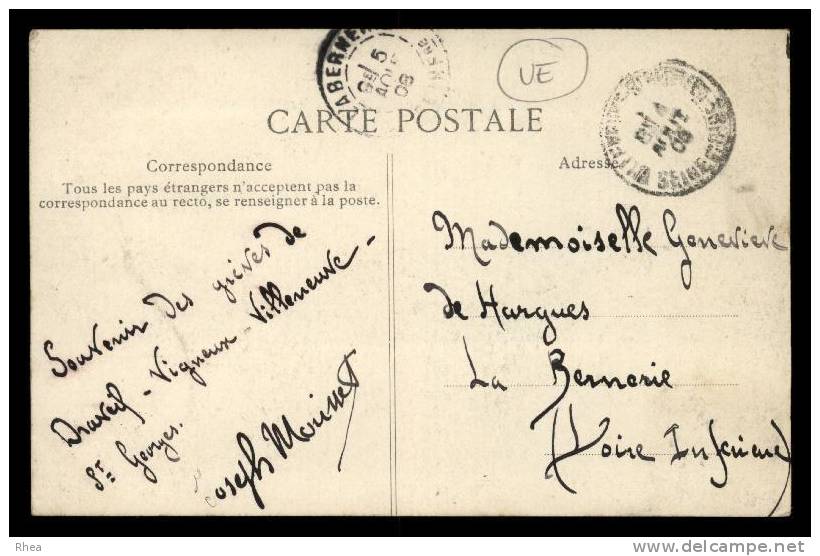 LA BERNERIE
5
AOUT
08
UE
4
AOUT
08
SEINE
CARTE POSTALE
Correspondance
Tous les pays étrangers n'acceptent pas la
correspondance au recto, se renseigner à la poste.
Adresse
Souvenir des grèves de
Draveil - Vigneux - Villeneuve -
St Georges.
Joseph Mousset
Mademoiselle Geneviève
de Hargues
La Bernerie
(Loire Inférieure)
Rhea
delcampe.net